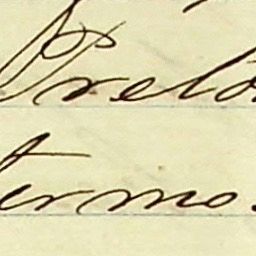 Prelo
termo.